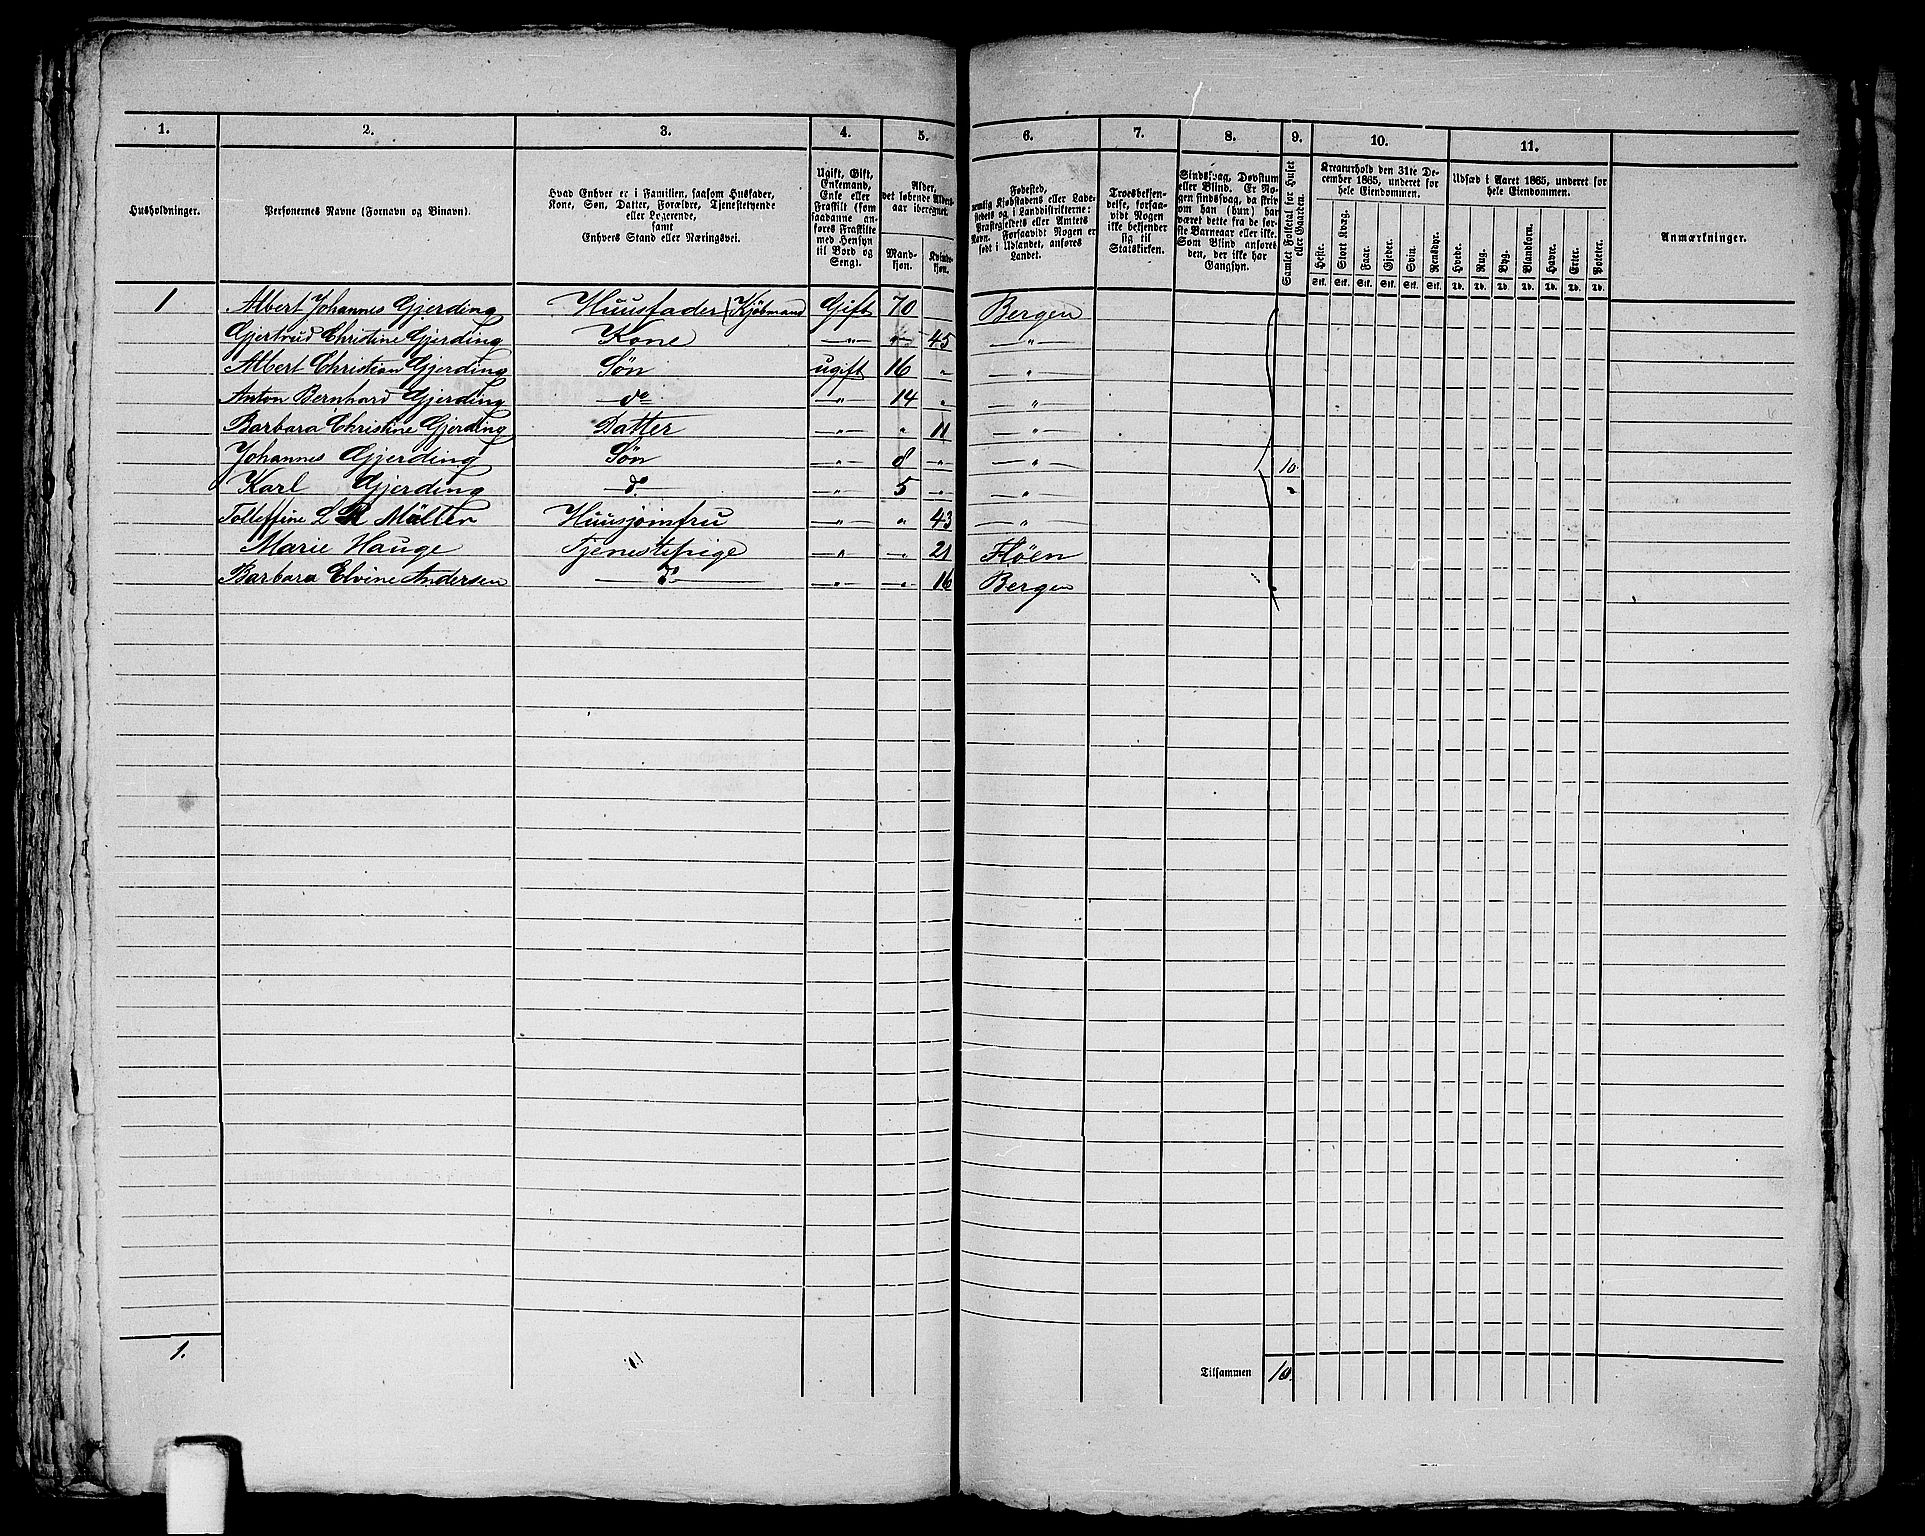 1. 2. 3. 4. 5. 6. 7. 8. 9. 10. 11.
Husholdninger.
Personernes Navne (Fornavn og Binavn).
Hvad Enhver er i Familien, saasom Husfader,
Kone, Søn, Datter, Forældre, Tjenestetyende
eller Logerende,
samt
Enhvers Stand eller Næringsvei.
Ugift, Gift,
Enkemand,
Enke eller
Fraskilt (som
saadanne an-
føres Fraskilte
med Hensyn
til Bord og
Seng).
Alder,
det løbende Alders-
aar iberegnet.
Mand-
kjøn.
Kvinde-
kjøn.
Fødested,
nemlig Kjøbstadens eller Lade-
stedets og i Landdistrikterne:
Præstegjeldets eller Amtets
Navn. Forsaavidt Nogen er
født i Udlandet, anføres
Landet.
Troesbekjen-
delse, forsaa-
vidt Nogen
ikke bekjender
sig til
Statskirken.
Sindssvag, Døvstum
eller Blind. Er No-
gen sindssvag, da skriv
om han (hun) har
været dette fra de før-
ste Barneaar eller ikke.
Som Blind anføres
den, der ikke har
Gangsyn.
Samlet Folketal for Huset
eller Gaarden.
Kreaturhold den 31te De-
cember 1865, underet for
hele Eiendommen.
Heste. Stort Kvæg. Faar. Gjeder. Svin. Rensdyr.
Stk. Stk. Stk. Stk. Stk. Stk.
Udsæd i Aaret 1865, underet for
hele Eiendommen.
Hvede. Rug. Byg. Blandkorn. Havre. Erter. Poteter.
Td. Td. Td. Td. Td. Td. Td.
Anmærkninger.
1 Albert Johannes Gjerding Huusfader Kjöbmand Gift 70 Bergen
Gjertrud Christine Gjerding Kone — " — " 45 — " —
Albert Christian Gjerding Søn ugift 16 " — " —
Anton Bernhard Gjerding — do — — " — 14 " — " —
Barbara Christine Gjerding Datter — " — " 11 — " —
Johannes Gjerding Søn — " — 8 " — " — 10.
Karl Gjerding — do — — " — 5 " — " —
Tollefine L R Müller Huusjomfru — " — " 43 — " —
Marie Hauge Tjenestepige — " — " 21 Fløen
Barbara Elvine Andersen — do — — " — " 16 Bergen
1. Tilsammen 10.